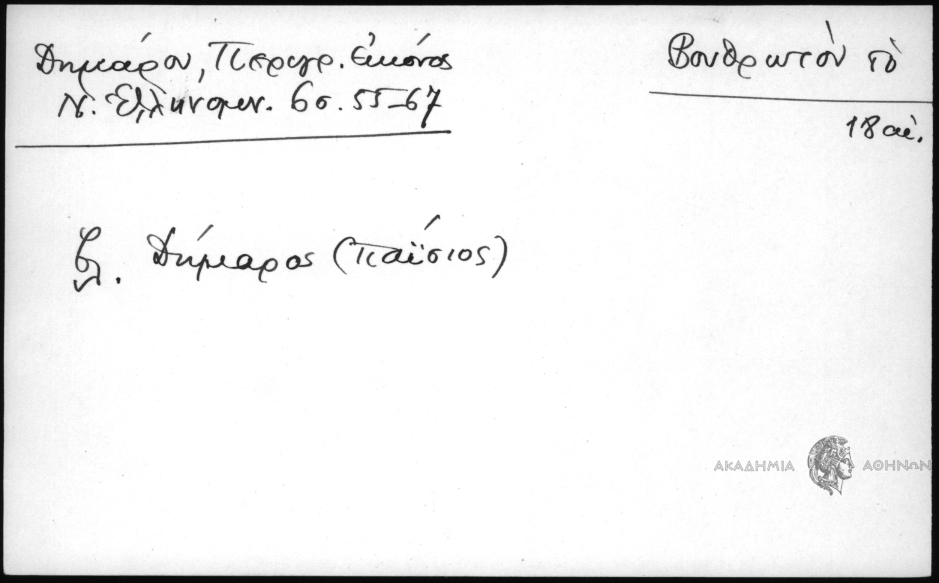 Δημάρου, Περιγρ. εἰκόνος
Ν. Ἑλληνομν. σσ. 55-67
Βουθρωτὸν τὸ
18 αἰ.
βλ. Δήμαρος (Παΐσιος)
ΑΚΑΔΗΜΙΑ ΑΘΗΝΩΝ